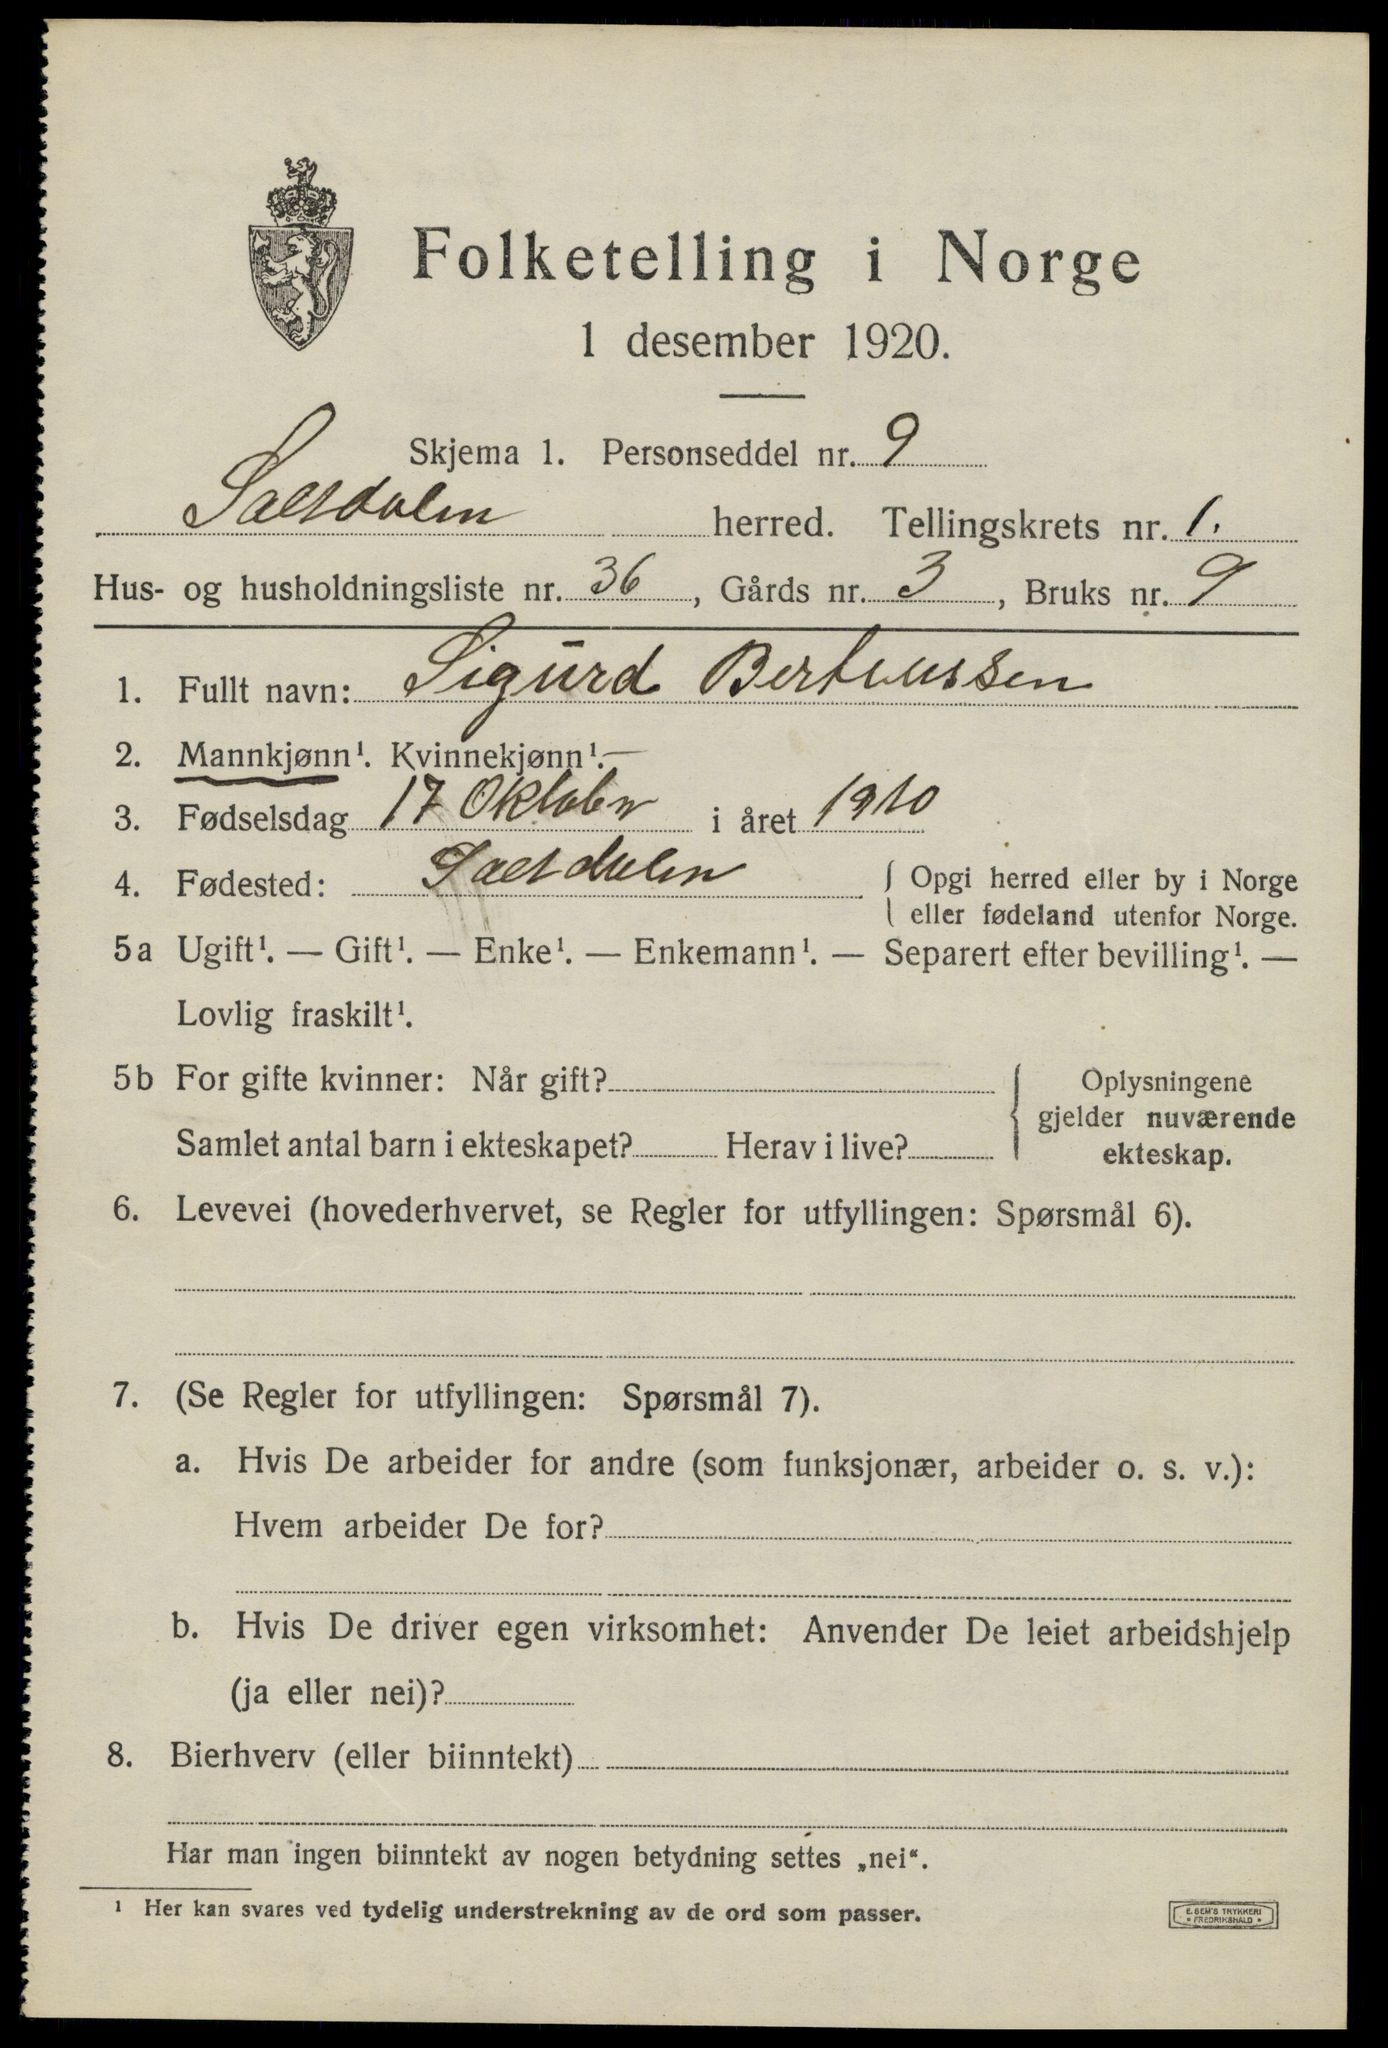 Folketelling i Norge
1 desember 1920.
Skjema 1. Personseddel nr. 9
Saltdalen herred. Tellingskrets nr. 1.
Hus- og husholdningsliste nr. 36, Gårds nr. 3, Bruks nr. 9
1. Fullt navn: Sigurd Berteussen
2. Mannkjønn¹. Kvinnekjønn¹.—
3. Fødselsdag 17 Oktober i året 1910
4. Fødested: Saltdalen { Opgi herred eller by i Norge
eller fødeland utenfor Norge.
5a Ugift¹. — Gift¹. — Enke¹. — Enkemann¹. — Separert efter bevilling¹. —
Lovlig fraskilt¹.
5b For gifte kvinner: Når gift?
Samlet antal barn i ekteskapet? Herav i live?
{ Oplysningene
gjelder nuværende
ekteskap.
6. Levevei (hovederhvervet, se Regler for utfyllingen: Spørsmål 6).
7. (Se Regler for utfyllingen: Spørsmål 7).
a. Hvis De arbeider for andre (som funksjonær, arbeider o. s. v.):
Hvem arbeider De for?
b. Hvis De driver egen virksomhet: Anvender De leiet arbeidshjelp
(ja eller nei)?
8. Bierhverv (eller biinntekt)
Har man ingen biinntekt av nogen betydning settes „nei“.
¹ Her kan svares ved tydelig understrekning av de ord som passer.
E. SEM'S TRYKKERI
* FREDRIKSHALD *